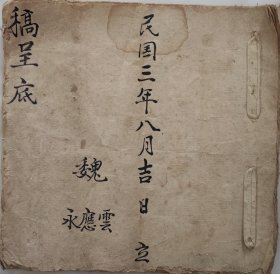 民国三年八月吉日立
魏
永應雲
稿呈底